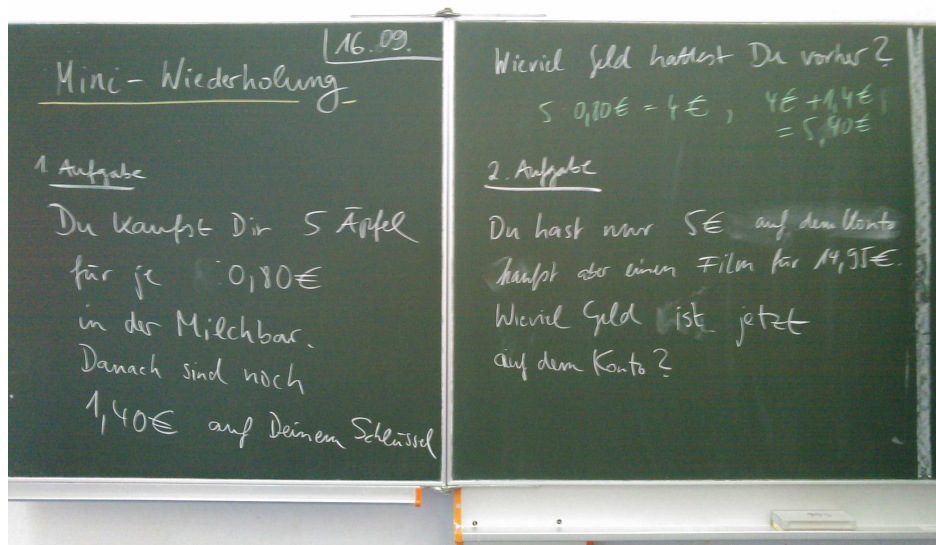 16.09.
Mini-Wiederholung
1. Aufgabe
Du kaufst Dir 5 Äpfel
für je 0,80€
in der Milchbar.
Danach sind noch
1,40€ auf Deinem Schlüssel
Wieviel Geld hattest Du vorher?
5 0,80€ = 4€, 4€ + 1,4€
= 5,40€
2. Aufgabe
Du hast nur 5€ auf dem Konto
kaufst aber einen Film für 14,95€.
Wieviel Geld ist jetzt
auf dem Konto?